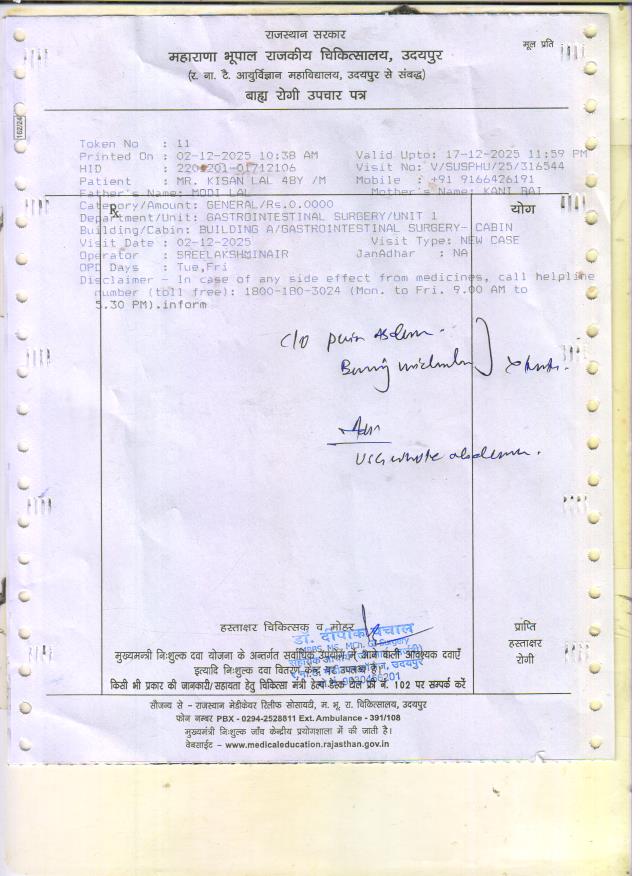 राजस्थान सरकार
मूल प्रति
महाराणा भूपाल राजकीय चिकित्सालय, उदयपुर
(र. ना. टै. आयुर्विज्ञान महाविद्यालय, उदयपुर से संबद्ध)
बाह्य रोगी उपचार पत्र
162/24
Token No : 11
Printed On : 02-12-2025 10:38 AM Valid Upto: 17-12-2025 11:59 PM
HID : 2201201-01712106 Visit No: V/SUSPHU/25/316544
Patient : MR. KISAN LAL 48Y /M Mobile : +91 9166426191
Father's Name: MODI LAL Mother's Name: KANI BAI
Category/Amount: GENERAL/Rs.0.0000
योग
Rx
Department/Unit: GASTROINTESTINAL SURGERY/UNIT 1
Building/Cabin: BUILDING A/GASTROINTESTINAL SURGERY- CABIN
Visit Date : 02-12-2025 Visit Type: NEW CASE
Operator : SREELAKSHMINAIR JanAdhar : NA
OPD Days : Tue,Fri
Disclaimer - In case of any side effect from medicines, call helpline
number (toll free): 1800-180-3024 (Mon. to Fri. 9.00 AM to
5.30 PM).inform
C/O pain Abdomen
Burning micturition
Adv
USG whole abdomen.
हस्ताक्षर चिकित्सक व मोहर
डॉ. दीपाक पंचाल
MBBS, MS, MCh. GI Surgery
मुख्यमन्त्री निःशुल्क दवा योजना के अन्तर्गत सर्वाधिक उपयोग में आने वाली आवश्यक दवाएँ
इत्यादि निःशुल्क दवा वितरण केन्द्र पर उपलब्ध है।
किसी भी प्रकार की जानकारी/सहायता हेतु चिकित्सा मंत्री हेल्प डेस्क टोल फ्री नं. 102 पर सम्पर्क करें
प्राप्ति
हस्ताक्षर
रोगी
सौजन्य से - राजस्थान मेडीकेयर रिलीफ सोसायटी, म. भू. रा. चिकित्सालय, उदयपुर
फोन नम्बर PBX - 0294-2528811 Ext. Ambulance - 391/108
मुख्यमन्त्री निःशुल्क जाँच केन्द्रीय प्रयोगशाला में की जाती है।
वेबसाईट - www.medicaleducation.rajasthan.gov.in